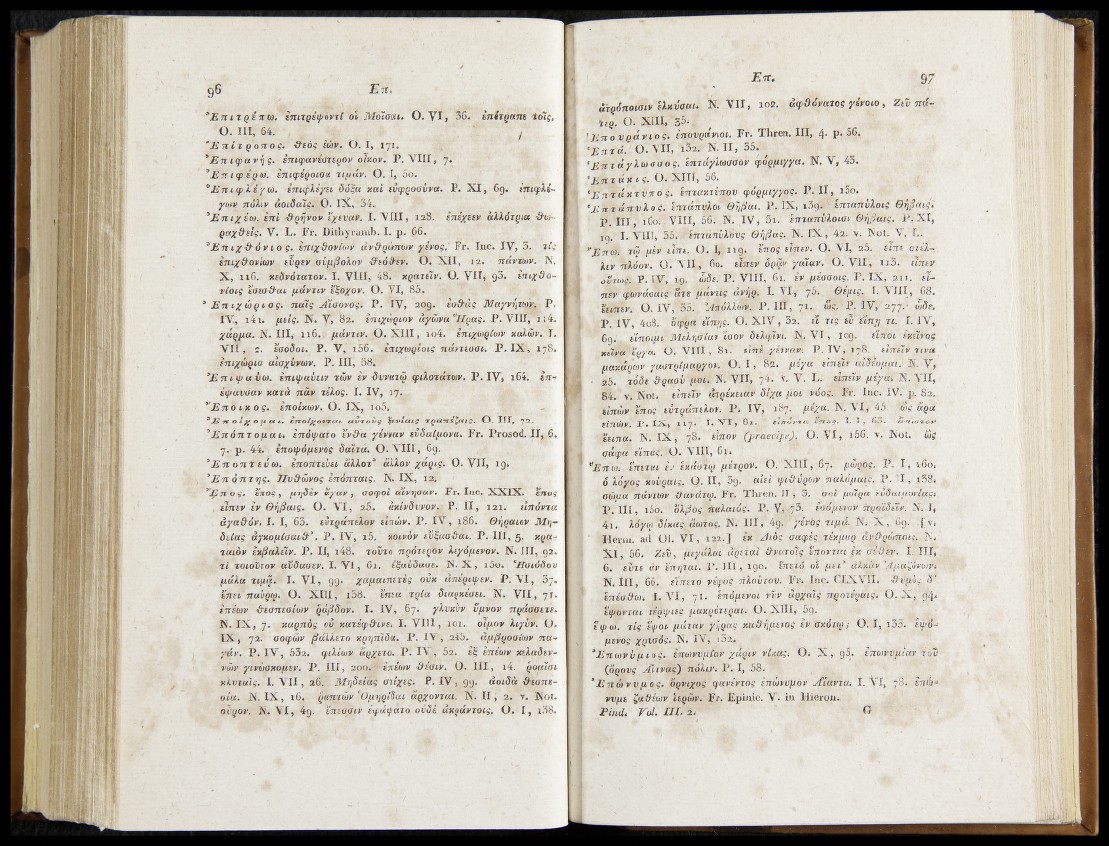 96 Επ.
Ἐπιτρέπω. ἐπιτρέψοντί οἱ Μοῖσαι. O. VI, 36. ἐπέτραπε τοῖς.
O. III, 64.
Ἐπίτροπος. θεὸς ἐών. O. I, 171.
Ἐπιφανής. ἐπιφανέστερον οἶκον. P. VIII, 7.
Ἐπιφέρω. ἐπιφέροισα τιμάν. O. I, 50.
Ἐπιφλέγω. ἐπιφλέγει δόξα καὶ εὐφροσύνα. P. XI, 69. ἐπιφλέ-
γων πόλιν ἀοιδαῖς. O. IX, 34.
Ἐπιχέω. ἐπὶ θρῆνον ἔχευαν. I. VIII, 128. ἐπέχεεν ἀλλότρια θω-
ραχθείς. V. L. Fr. Dithyramb. I. p. 66.
Ἐπιχθόνιος. ἐπιχθονίων ἀνθρώπων γένος. Fr. Inc. IV, 3. τίς
ἐπιχθονίων εὗρεν σύμβολον θεόθεν. O. XII, 12. πάντων. N.
X, 116. κεδνότατον. I. VIII, 48. κρατεῖν. O. VII, 93. ἐπιχθο-
νίοις ἔσεσθαι μάντιν ἔξοχον. O. VI, 85.
Ἐπιχώριος. παῖς Αἴσονος. P. IV, 209. ἐσθὰς Μαγνήτων. P.
IV, 141. μείς. N. V, 82. ἐπιχώριον ἀγῶνα Ἥρας. P. VIII, 114.
χάρμα. N. III, 116. μάντιν. O. XIII, 104. ἐπιχωρίων καλῶν. I.
VII, 2. ἔσοδοι. P. V, 156. ἐπιχωρίοις πάντεσσι. P. IX, 178.
ἐπιχώρια αἰσχύνων. P. III, 38.
Ἐπιψαύω. ἐπιψαύειν τῶν ἐν δυνατῷ φιλοτάτων. P. IV, 164. ἐπ-
έψαυσαν κατὰ πᾶν τέλος. I. IV, 17.
Ἔποικος. ἐποίκων. O. IX, 105.
Ἐποίχομαι. ἐποίχονται αὐτοὺς ξενίαις τραπέζαις. O. III, 72.
Ἐπόπτομαι. ἐπόψατο ἔνθα γένναν εὐδαίμονα. Fr. Prosod. II, 6.
7. p. 44. ἐποψόμενος δαῖτα. O. VIII, 69.
Ἐποπτεύω. ἐποπτεύει ἄλλοτ᾽ ἄλλον χάρις. O. VII, 19.
Ἐπόπτης. Πυθῶνος ἐπόπταις. N. IX, 12.
Ἔπος. ἔπος, μηδὲν ἄγαν, σοφοὶ αἴνησαν. Fr. Inc. XXIX. ἔπος
εἶπεν ἐν Θήβαις. O. VI, 25. ἀκίνδυνον. P. II, 121. εἰπόντα
ἀγαθόν. I. I, 63. εὐτράπελον εἰπών. P. IV, 186. Θήραιον Μη-
δείας ἀγκομίσαιθ᾽. P. IV, 15. κοινὸν εὔξασθαι. P. III, 5. κρα-
ταιὸν ἐκβαλεῖν. P. II, 148. τοῦτο πρότερον λεγόμενον. N. III, 92.
τὶ τοιοῦτον αὔδασεν. I. VI, 61. ἐξαύδασε. N. X, 150. Ἡσιόδου
μάλα τιμᾷ. I. VI, 99. χαμαιπετὲς οὐκ ἀπέριψεν. P. VI, 37.
ἔπει παύρῳ. O. XIII, 138. ἔπεα τρία διαρκέσει. N. VII, 71.
ἐπέων θεσπεσίων ῥάβδον. I. IV, 67. γλυκὺν ὕμνον πράσσετε.
N. IX, 7. καρπὸς οὐ κατέφθινε. I. VIII, 101. οἶμον λιγύν. O.
IX, 72. σοφῶν βάλλετο κρηπῖδα. P. IV, 245. ἀμβροσίων πα-
γάν. P. IV, 532. φιλίων ἄρχετο. P. IV, 52. ἐξ ἐπέων κελαδεν-
νῶν γινώσκομεν. P. III, 200. ἐπέων θέσιν. O. III, 14. ῥοαῖσι
κλυταῖς. I. VII, 26. Μηδείας στίχες. P. IV, 99. ἀοιδὰ θεσπε-
σία. N. IX, 16. ῥαπτῶν Ὁμηρίδαι ἄρχονται. N. II, 2. v. Not.
οὖρον. N. VI, 49. ἔπεσσιν ἐφάψατο οὐδὲ ἀκράντοις. O. I, 138.
Επ. 97
ἀτρόποισιν ἑλκύσαι. N. VII, 102. ἀφθόνατος γένοιο, Ζεῦ πά-
τερ. O. XIII, 35.
Ἐπουράνιος. ἐπουράνιοι. Fr. Thren. III, 4. p. 36.
Ἑπτά. O. VII, 132. N. II, 35.
Ἑπτάγλωσσος. ἑπτάγλωσσον φόρμιγγα. N. V, 43.
Ἑπτάκις. O. XIII, 56.
Ἑπτάκτυπος. ἑπτακτύπου φόρμιγγος. P. II, 130.
Ἑπτάπυλος. ἑπτάπυλοι Θῆβαι. P. IX, 139. ἑπταπύλοις Θήβαις.
P. III, 160. VIII, 56. N. IV, 31. ἑπταπύλοισι Θήβαις. P. XI,
19. I. VIII, 35. ἑπταπύλους Θήβας. N. IX, 42. v. Not. V. L.
Ἔπω. τῷ μὲν εἶπε. O. I, 119. ἔπος εἶπεν. O. VI, 25. εἶπε στέλ-
λειν πλόον. O. VII, 60. εἶπεν ὁρᾶν γαῖαν. O. VII, 113. εἶπεν
οὕτως. P. IV, 19. ὧδε. P. VIII, 61. ἐν μέσσοις. P. IX, 211. εἶ-
πεν φωνάσαις ἅτε μάντις ἀνήρ. I. VI, 75. Θέμις. I. VIII, 68.
ἔειπεν. O. IV, 35. Ἀπόλλων. P. III, 71. ὥς. P. IV, 277. ὧδε.
P. IV, 408. ὄφρα εἴπῃς. O. XIV, 32. εἴ τις εὖ εἴπῃ τι. I. IV,
69. εἴποιμι Μελησίαν ἴσον δελφῖνι. N. VI, 109. εἴποι ἐκεῖνος
κεῖνα ἔργα. O. VIII, 81. εἰπὲ γένναν. P. IV, 178. εἰπεῖν τινα
μακάρων γαστρίμαργον. O. I, 82. μέγα εἰπεῖν αἰδέομαι. N. V,
25. τόδε θρασύ μοι. N. VII, 74. v. V. L. εἰπεῖν μέγα. N. VII,
84. v. Not. εἰπεῖν ἀτρέκειαν δίχα μοι νόος. Fr. Inc. IV. p. 82.
εἰπὼν ἔπος εὐτράπελον. P. IV, 187. μέγα. N. VI, 45. ὣς ἄρα
εἰπών. P. IX, 117. I. VI, 81. εἰπόντα ἔπος. I. I, 63.
ἔειπα. N. IX, 78. εἶπον (praecipe). O. VI, 156. v. Not. ὡς
σάφα εἴπαις. O. VIII, 61.
Ἕπω. ἕπεται ἐν ἑκάστῳ μέτρον. O. XIII, 67. μῶμος. P. I, 160.
ὁ λόγος κούραις. O. II, 39. αἰεὶ ψιθύρων παλάμαις. P. II, 138.
σῶμα πάντων θανάτῳ. Fr. Thren. II, 3. σοὶ μοῖρα εὐδαιμονίας.
P. III, 150. ὄλβος παλαιός. P. V, 73. ἑσόμενον προϊδεῖν. N. I,
41. λόγῳ δίκας ἄωτος. N. III, 49. γένος τιμά. N. X, 69. [v.
Herm. ad Ol. VI, 122.] ἐκ Διὸς σαφὲς τέκμαρ ἀνθρώποις. N.
XI, 56. Ζεῦ, μεγάλαι ἀρεταὶ θνατοῖς ἕπονται ἐκ σέθεν. I. III,
6. εὖτε ἂν ἕπηται. P. III, 190. ἕπετό οἱ μετ᾽ ἀλκὰν Ἀμαζόνων.
N. III, 66. εἵπετο νέφος πλούτου. Fr. Inc. CLXVII. θυμὸς δ᾽
ἑπέσθω. I. VI, 71. ἑπόμενοι νῦν ἀρχαῖς προτέραις. O. X, 94.
ἕψονται τέρψιες μακρότεραι. O. XIII, 59.
Ἕψω. τίς ἕψοι μάταν γῆρας καθήμενος ἐν σκότῳ; O. I, 133. ἑψό-
μενος χρυσός. N. IV, 132.
Ἐπωνύμιος. ἐπωνυμίαν χάριν νίκας. O. X, 95. ἐπωνυμίαν τοῦ
(ὄρους Αἴτνας) πόλιν. P. I, 58.
Ἐπώνυμος. ὄρνιχος φανέντος ἐπώνυμον Αἴαντα. I. VI, 78. ἐπώ-
νυμε ζαθέων ἱερῶν. Fr. Epinic. V. in Hieron.
Pind. Vol. III. 2. G